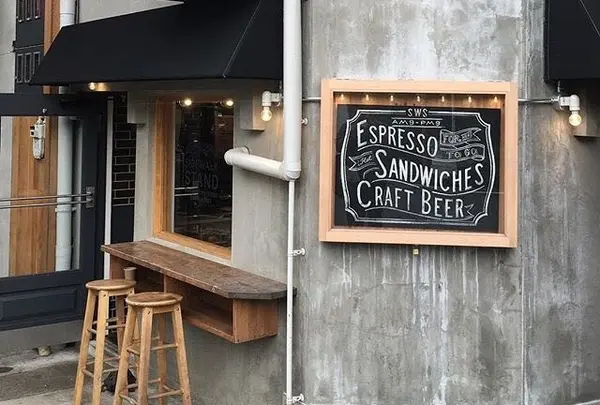 SWS
AM9-PM9
ESPRESSO
FOR HERE
TO GO
Hot
SANDWICHES
CRAFT BEER
STAND